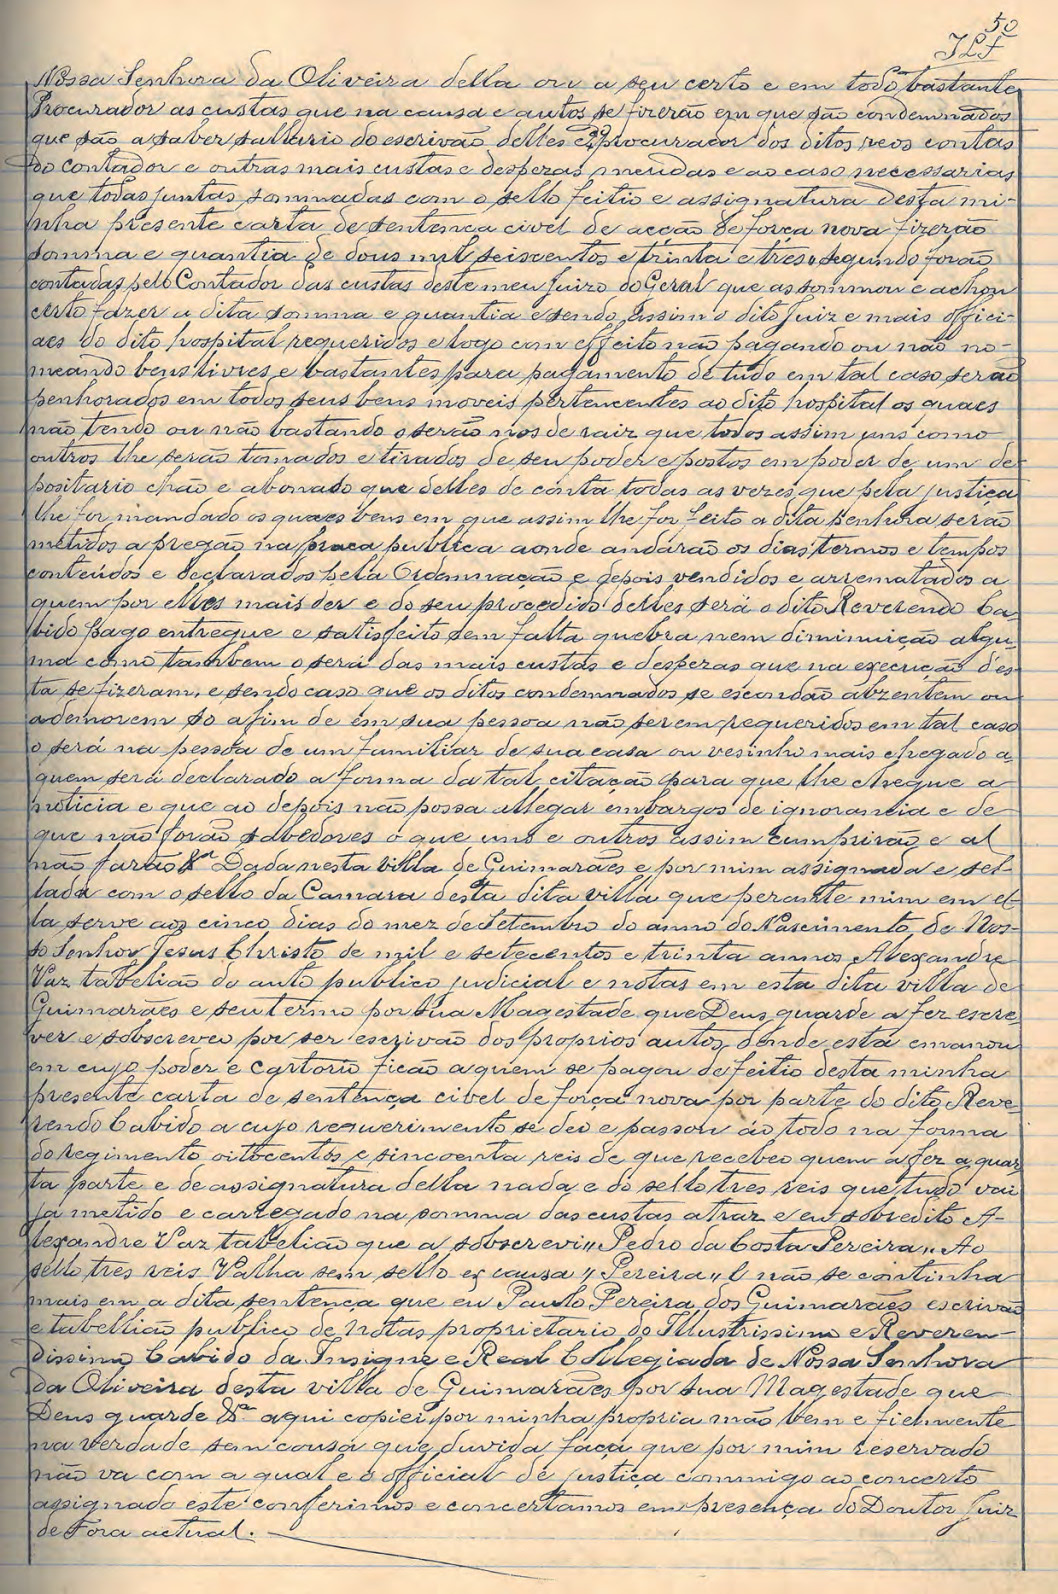 50
JLF
Nossa Senhora da Oliveira della ou a seu certo e em todo bastante
Procurador as custas que na causa e autos se fizerão em que são condemnados
que são a saber sallario do escrivão delles e procurador dos ditos reos contas
do contador e outras mais custas e despezas meudas e ao caso necessarias
que todas juntas sommadas com o sello feitio e assignatura desta mi-
nha presente carta de sentença civel de acção de força nova fizerão
somma e quantia de dous mil seiscentos e trinta e tres, segundo forão
contadas pelo Contador das custas deste meu Juizo do Geral que as sommou e achou
certo fazer a dita somma e quantia e sendo assim o dito Juiz e mais offici-
aes do dito hospital requeridos e logo com effeito não pagando ou não no-
meando bens livres e bastantes para pagamento de tudo em tal caso serão
penhorados em todos seus bens moveis pertencentes ao dito hospital os quaes
não tendo ou não bastando o serão nos de raiz que todos assim uns como
outros lhe serão tomados e tirados de seu poder e postos em poder de um de-
positario chão e abonado que delles de conta todas as vezes que pela justiça
lhe for mandado os quaes bens em que assim lhe for feito a dita penhora serão
metidos a pregão na praça publica aonde andarão os dias termos e tempos
conteúdos e declarados pela Ordennação e depois vendidos e arrematados a
quem por elles mais der e do seu procedido delles será o dito Reverendo Ca-
bido pago entregue e satisfeito sem falta quebra nem diminuição algu-
ma como tambem o será das mais custas e despezas que na execução des-
ta se fizeram, e sendo caso que os ditos condemnados se escondão abzentem ou
ademorem so afim de em sua pessoa não serem requeridos em tal caso
o será na pessoa de um familiar de sua casa ou vesinho mais chegado a
quem será declarado a forma da tal citação para que lhe chegue a
noticia e que ao depois não possa allegar embargos de ignorancia e de
que não forão sabedores o que uns e outros assim cumprirão e al
não farão &ª Dada nesta villa de Guimarães e por mim assignada e sel-
lada com o sello da Camara desta dita villa que perante mim em el-
la serve aos cinco dias do mez de Setembro do anno do Nascimento de Nos-
so Senhor Jesus Christo de mil e setecentos e trinta annos Alexandre
Vaz tabelião do auto publico judicial e notas em esta dita villa de
Guimarães e seu termo por sua Magestade que Deus guarde a fez escre-
ver e sobscreveo por ser escrivão dos proprios autos donde esta emanou
em cujo poder e cartorio ficão a quem se pagou de feitio desta minha
presente carta de sentença cibel de força nova por parte do dito Reve-
rendo Cabido a cujo requerimento se deo e passou ao todo na forma
do regimento oitocentos e sincoenta reis de que recebeo quem a fez a quar-
ta parte e de assignatura della nada e do sello tres reis que tudo vai
já metido e carregado na somma das custas atraz e eu sobredito A-
lexandre Vaz tabelião que a sobscrevi,, Pedro da Costa Pereira,, Ao
sello tres reis Valha sem sello ex causa,, Pereira,, E não se continha
mais em a dita sentença que eu Paulo Pereira dos Guimarães escrivão
e tabellião publico de notas proprietario do Illustrissimo e Reveren-
dissimo Cabido da Insigne e Real Collegiada de Nossa Senhora
da Oliveira desta villa de Guimarães por sua Magestade que
Deus guarde &ª aqui copiei por minha propria mão bem e fielmente
na verdade sem cousa que duvida faça que por mim reservado
não va com a qual e o official de justiça commigo ao concerto
assignado este conferimos e concertamos em presença do Doutor Juiz
de Fora actual.